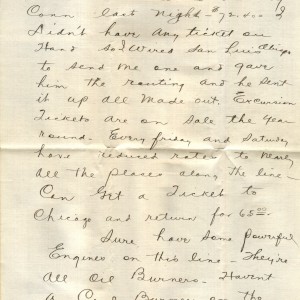 Conn last night - $72.50
Didn't have any ticket on
Hand so I wired San Luis Obispo
to send me one and gave
him the routing and he sent
it up all made out, Excursion
Tickets are on sale the year
round - Every friday and Saturday
have reduced rates to nearly
all the places along the line -
Can Get a Ticket to
Chicago and return for 65.00.
Sure have some powerful
Engines on this line - They're
All Oil Burners - Haven't
the